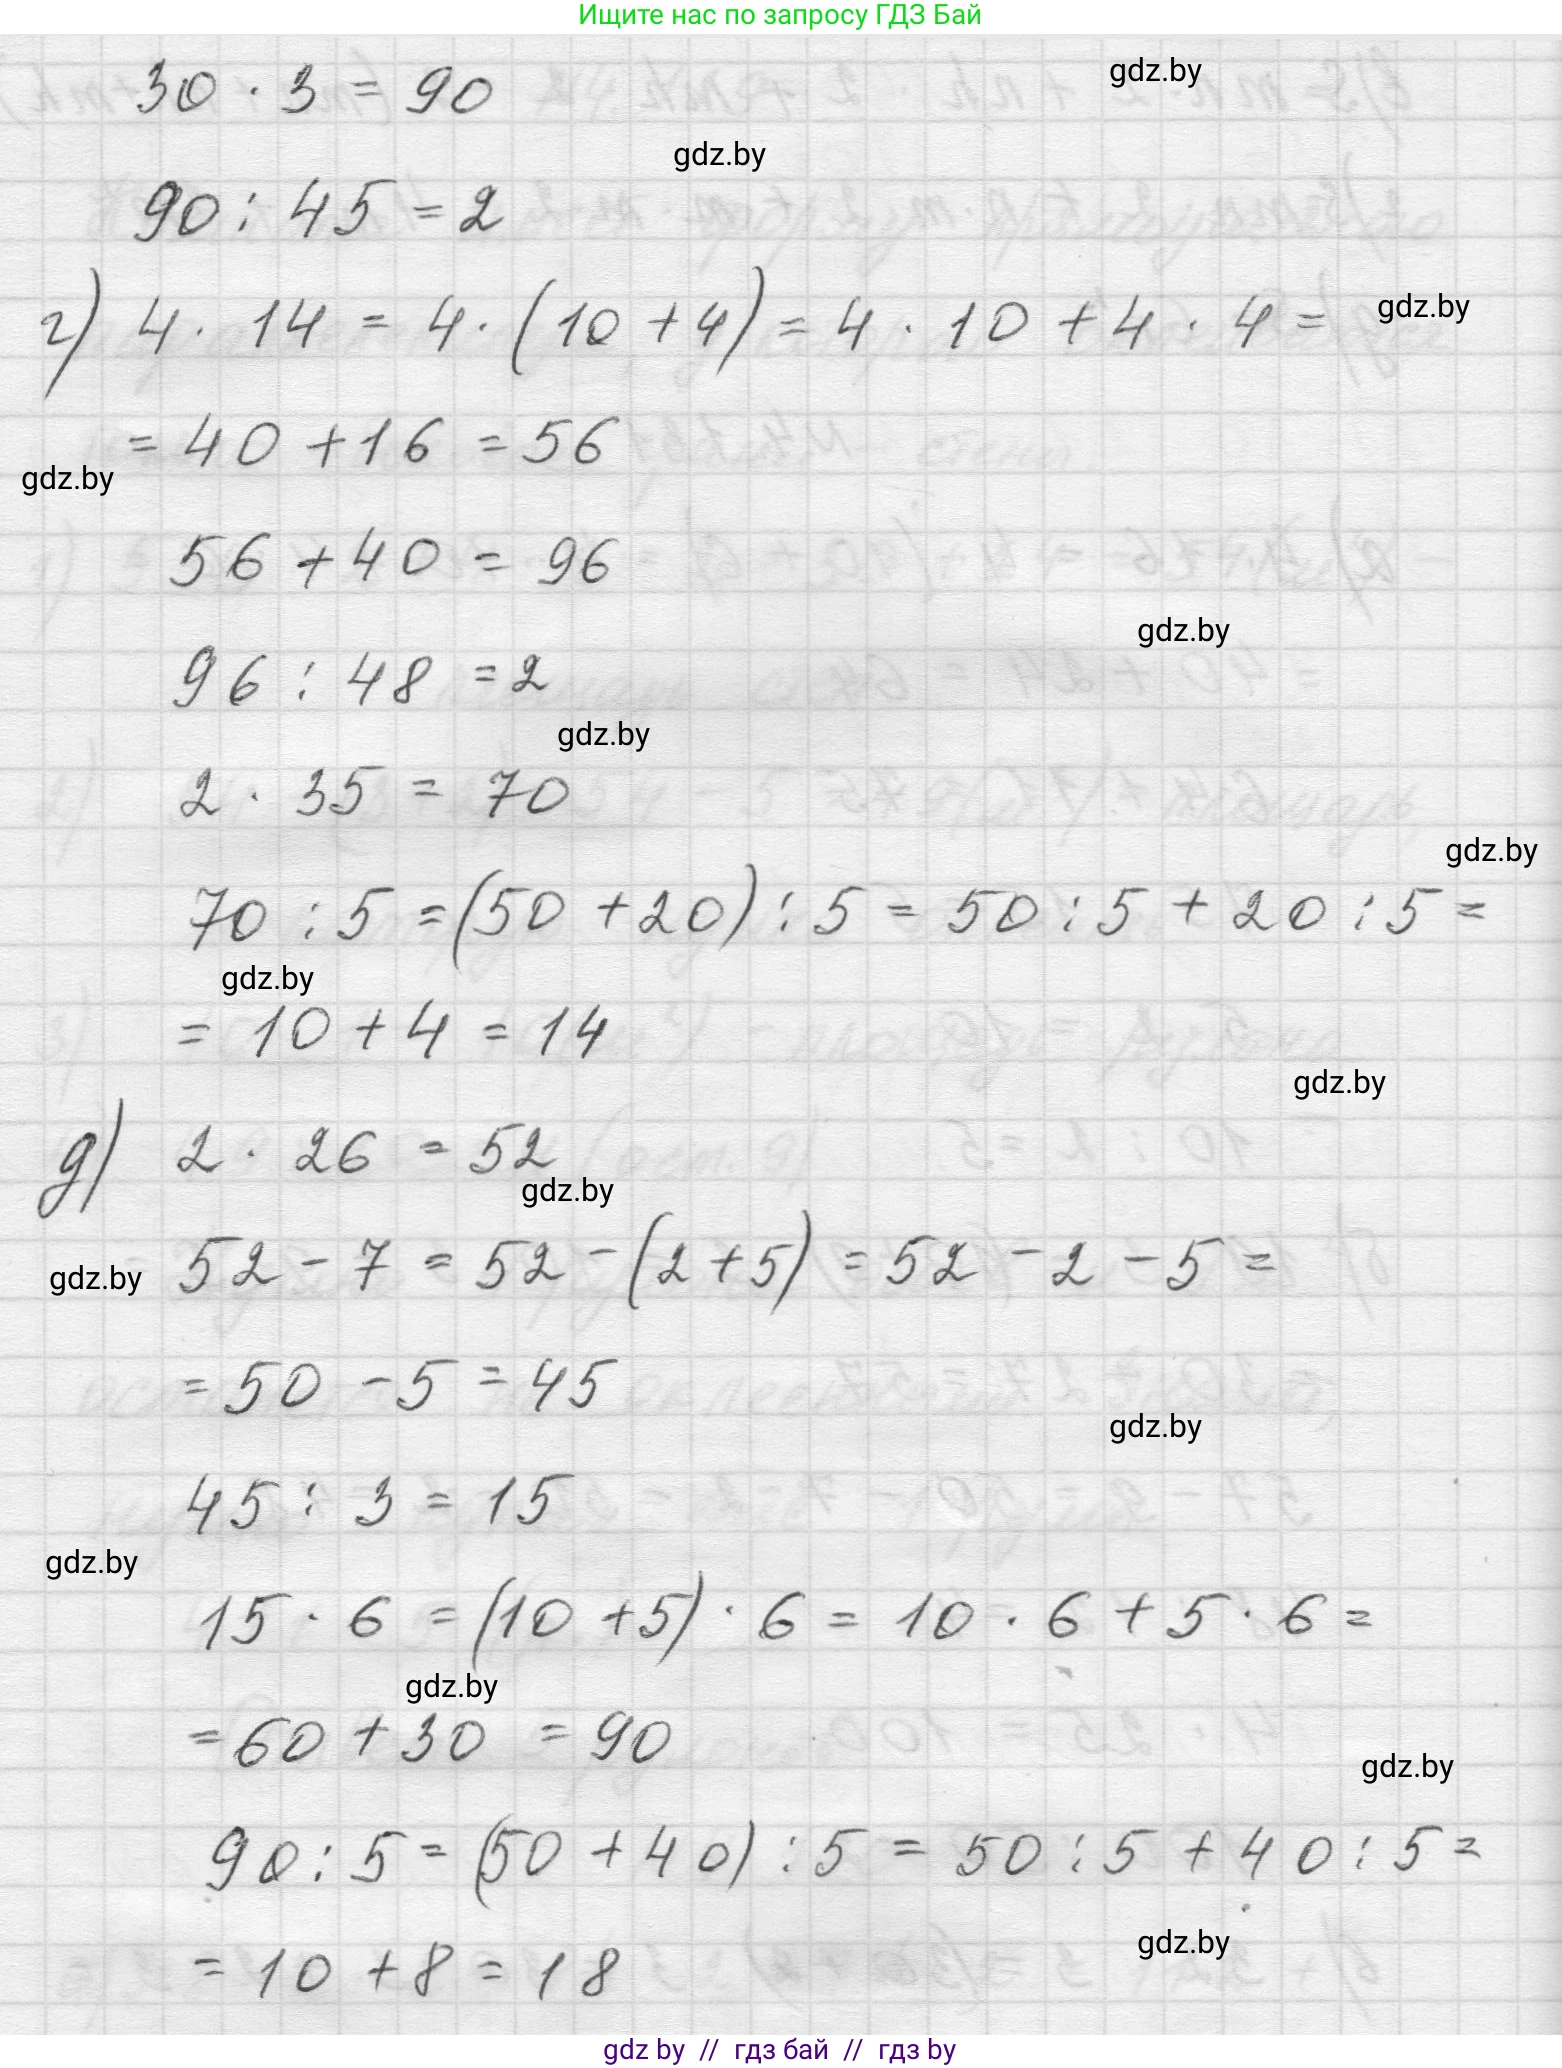 Ищите нас по запросу ГДЗ Бай
30 · 3 = 90
gdz.by
gdz.by
90 : 45 = 2
г) 4 · 14 = 4 · (10 + 4) = 4 · 10 + 4 · 4 =
gdz.by
= 40 + 16 = 56
gdz.by
56 + 40 = 96
gdz.by
96 : 48 = 2
gdz.by
2 · 35 = 70
gdz.by
70 : 5 = (50 + 20) : 5 = 50 : 5 + 20 : 5 =
gdz.by
= 10 + 4 = 14
gdz.by
д) 2 · 26 = 52
gdz.by
52 - 7 = 52 - (2 + 5) = 52 - 2 - 5 =
gdz.by
= 50 - 5 = 45
gdz.by
45 : 3 = 15
gdz.by
15 · 6 = (10 + 5) · 6 = 10 · 6 + 5 · 6 =
gdz.by
= 60 + 30 = 90
gdz.by
90 : 5 = (50 + 40) : 5 = 50 : 5 + 40 : 5 =
gdz.by
= 10 + 8 = 18
gdz by // гдз бай // гдз by